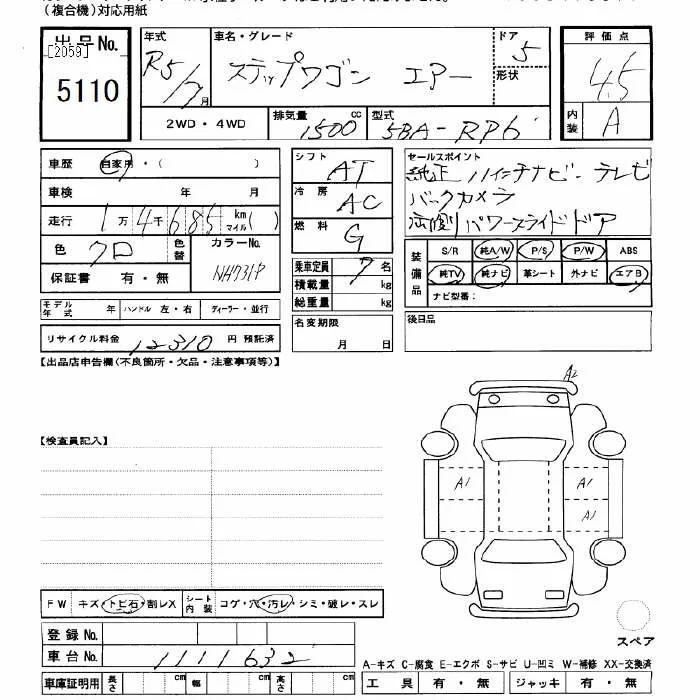 (複合機)対応用紙
出品No.
[2059]
5110
年式
R5/7月
車名・グレード
ステップワゴン エアー
ドア
5
形状
評価点
4.5
内装
A
2WD・4WD
排気量
1500 cc
型式
5BA-RP6
車歴
自家用・( )
車検 年 月
走行 1万4千685 km マイル( )
色 クロ
色替
カラーNo.
NH731P
保証書 有・無
シフト AT
冷房 AC
燃料 G
乗車定員 7名
積載量 kg
総重量 kg
セールスポイント
純正 ハイニチナビ テレビ
バックカメラ
両側パワースライドドア
装備品
S/R 純A/W P/S P/W ABS
純TV 純ナビ 革シート 外ナビ エアB
ナビ型番:
モデル年式 年 ハンドル 左・右 ディーラー・並行
名変期限
月 日
後日品
リサイクル料金 12310 円 預託済
【出品店申告欄(不良箇所・欠品・注意事項等)】
A2
【検査員記入】
A1
A1
A1
FW キズ・トビ石・割レX
シート内装 コゲ・穴・汚レ・シミ・破レ・スレ
登録No.
車台No. 1111632
スペア
A-キズ C-腐食 E-エクボ S-サビ U-凹ミ W-補修 XX-交換済
車庫証明用 長さ cm 幅 cm 高さ cm
工具 有・無 ジャッキ 有・無